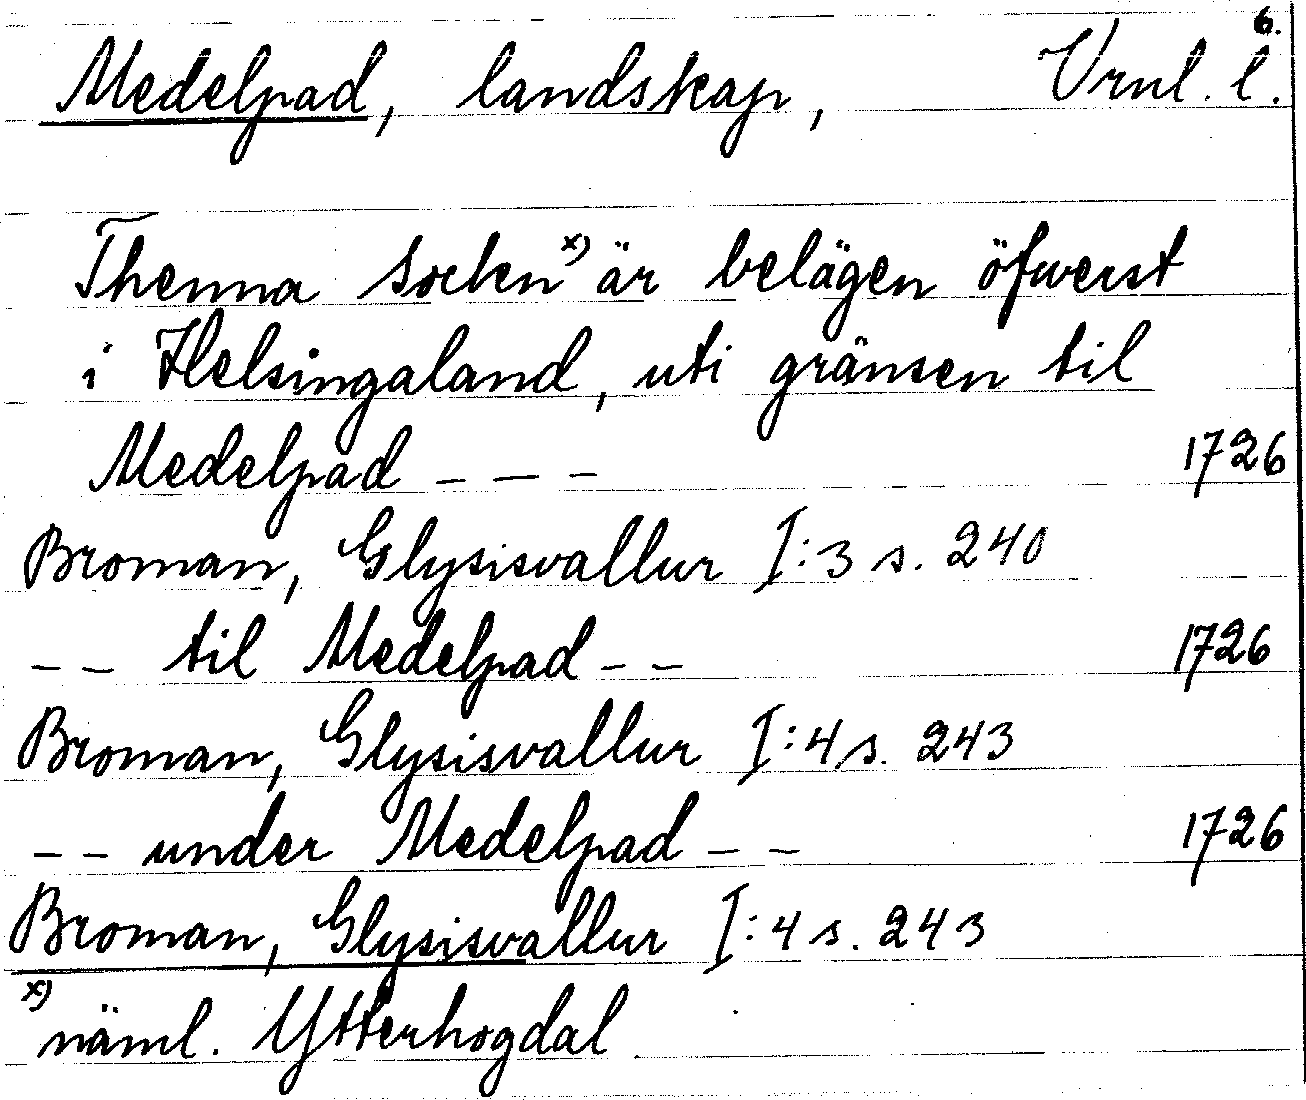 6.
Medelpad, landskap, Vrnl. l.
Thenna Socken x) är belägen öfwerst
i Helsingaland, uti gränsen til
Medelpad - - - 1726
Broman, Glysisvallur I:3 s. 240
- - til Medelpad - - 1726
Broman, Glysisvallur I:4 s. 243
- - under Medelpad - - 1726
Broman, Glysisvallur I:4 s. 243
x) näml. Ytterhogdal